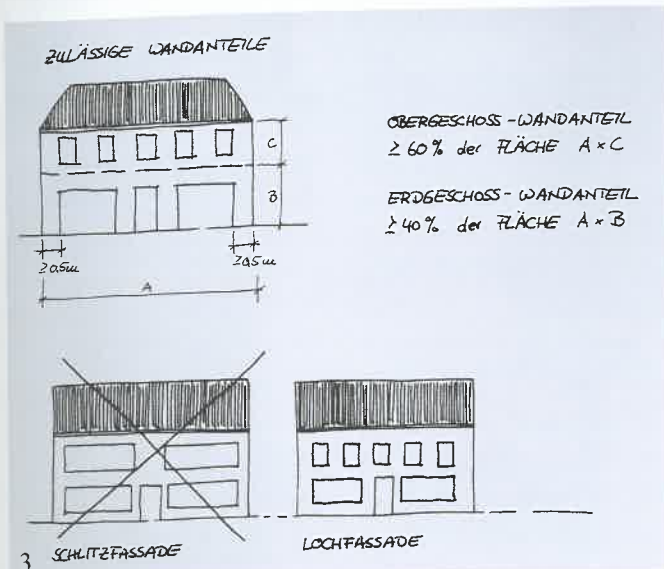 ZULÄSSIGE WANDANTEILE
OBERGESCHOSS - WANDANTEIL
≥ 60 % der FLÄCHE A × C
ERDGESCHOSS - WANDANTEIL
≥ 40 % der FLÄCHE A × B
C
B
≥ 0,5m
≥ 0,5m
A
3
SCHLITZFASSADE
LOCHFASSADE